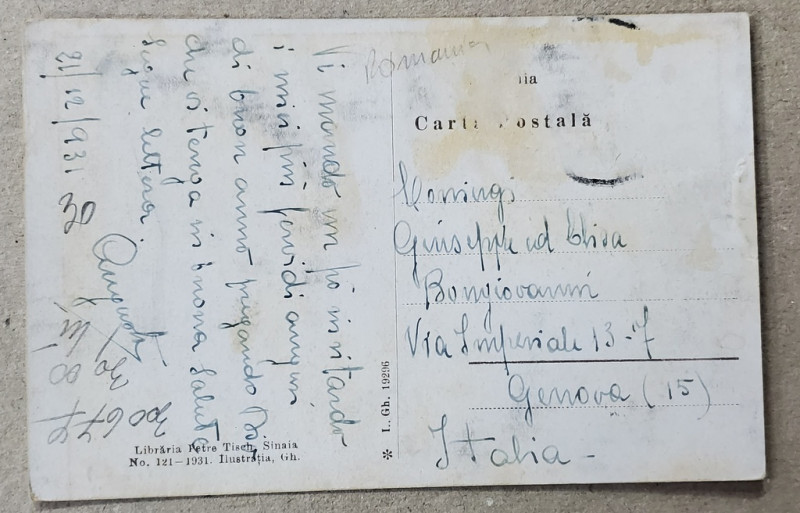 Vi mando un pò in ritardo
i miei più fervidi auguri
di buon anno pregando Dio
che vi tenga in buona salute
Segue lettera.
Augusto
21/12/931
Romania
ia
Cart ostală
Giuseppe ed Elisa
Bongiovanni
Via Imperiale 13-7
Genova (15)
Italia -
* I., Gh. 19296
Librăria Petre Tisch, Sinaia
No. 121-1931. Ilustrația, Gh.